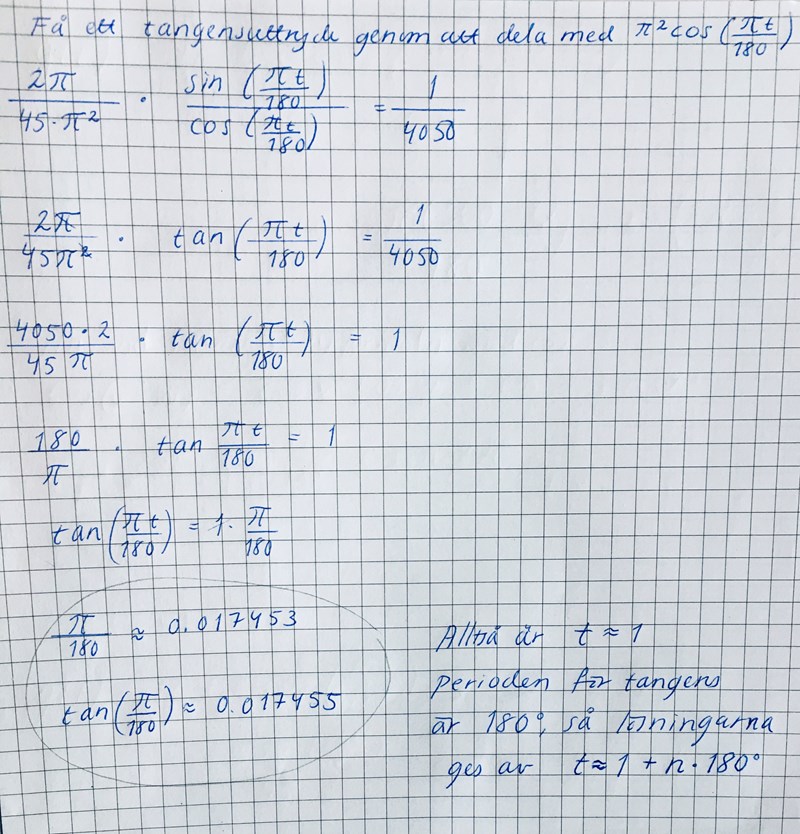 Få ett tangensuttryck genom att dela med π² cos(πt/180)
2π/(45·π²) · sin(πt/180)/cos(πt/180) = 1/4050
2π/(45π²) · tan(πt/180) = 1/4050
(4050·2)/(45π) · tan(πt/180) = 1
180/π · tan πt/180 = 1
tan(πt/180) = 1·π/180
π/180 ≈ 0.017453
tan(π/180) ≈ 0.017455
Alltså är t ≈ 1
perioden för tangens
är 180°, så lösningarna
ges av t ≈ 1 + n·180°